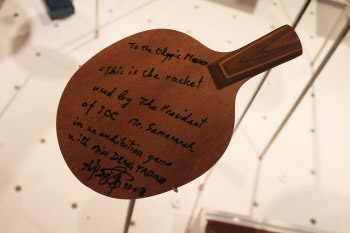 To the Olypic Museum
«This is the racket
used by The President
of IOC Mr. Samaranch
in an exhibition game
with Miss DENG YAPING